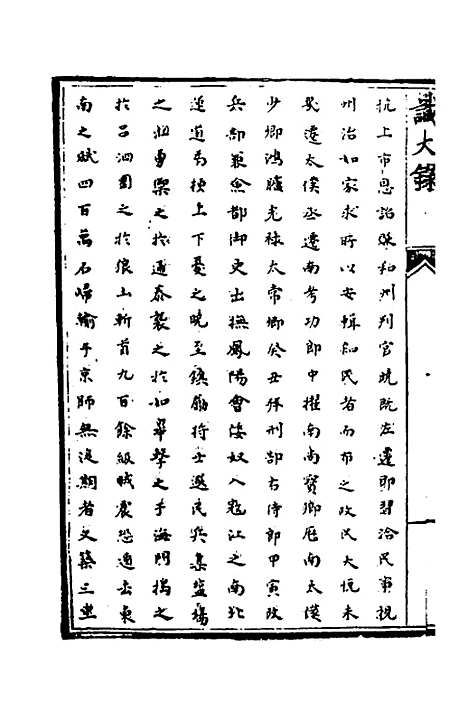 識大錄
抗上市恩詔謫和州判官曉既左遷即習洽民事視
州治如家求所以安輯和民者而布之政民大悅未
幾遷太僕丞遷南考功郎中擢南尚寶卿歷南太僕
少卿鴻臚光祿太常卿癸丑拜刑部右侍郎甲寅改
兵部兼僉都御史出撫鳳陽會倭奴入寇江之南北
運道為梗上下憂之曉至鎮勵將士選民兵集鹽場
之驍勇禦之於通泰襲之於如皋擊之于海門搗之
於呂泗圍之於狼山斬首九百餘級賊震恐遁去東
南之賦四百萬石歸輸于京師無後期者又築三